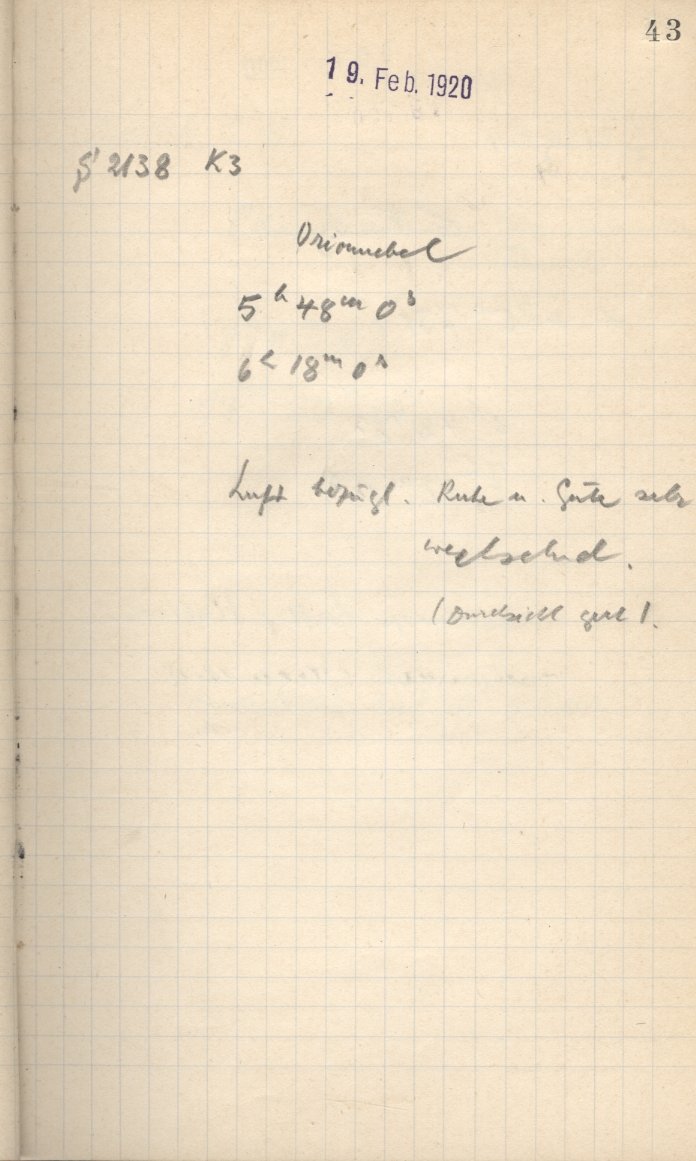 43
19. Feb. 1920
2138 K3
Orionnebel
5h 48m 0s
6h 18m 0s
Luft bezügl. Ruhe u. Güte sehr
wechselnd.
(Durchsicht gut).